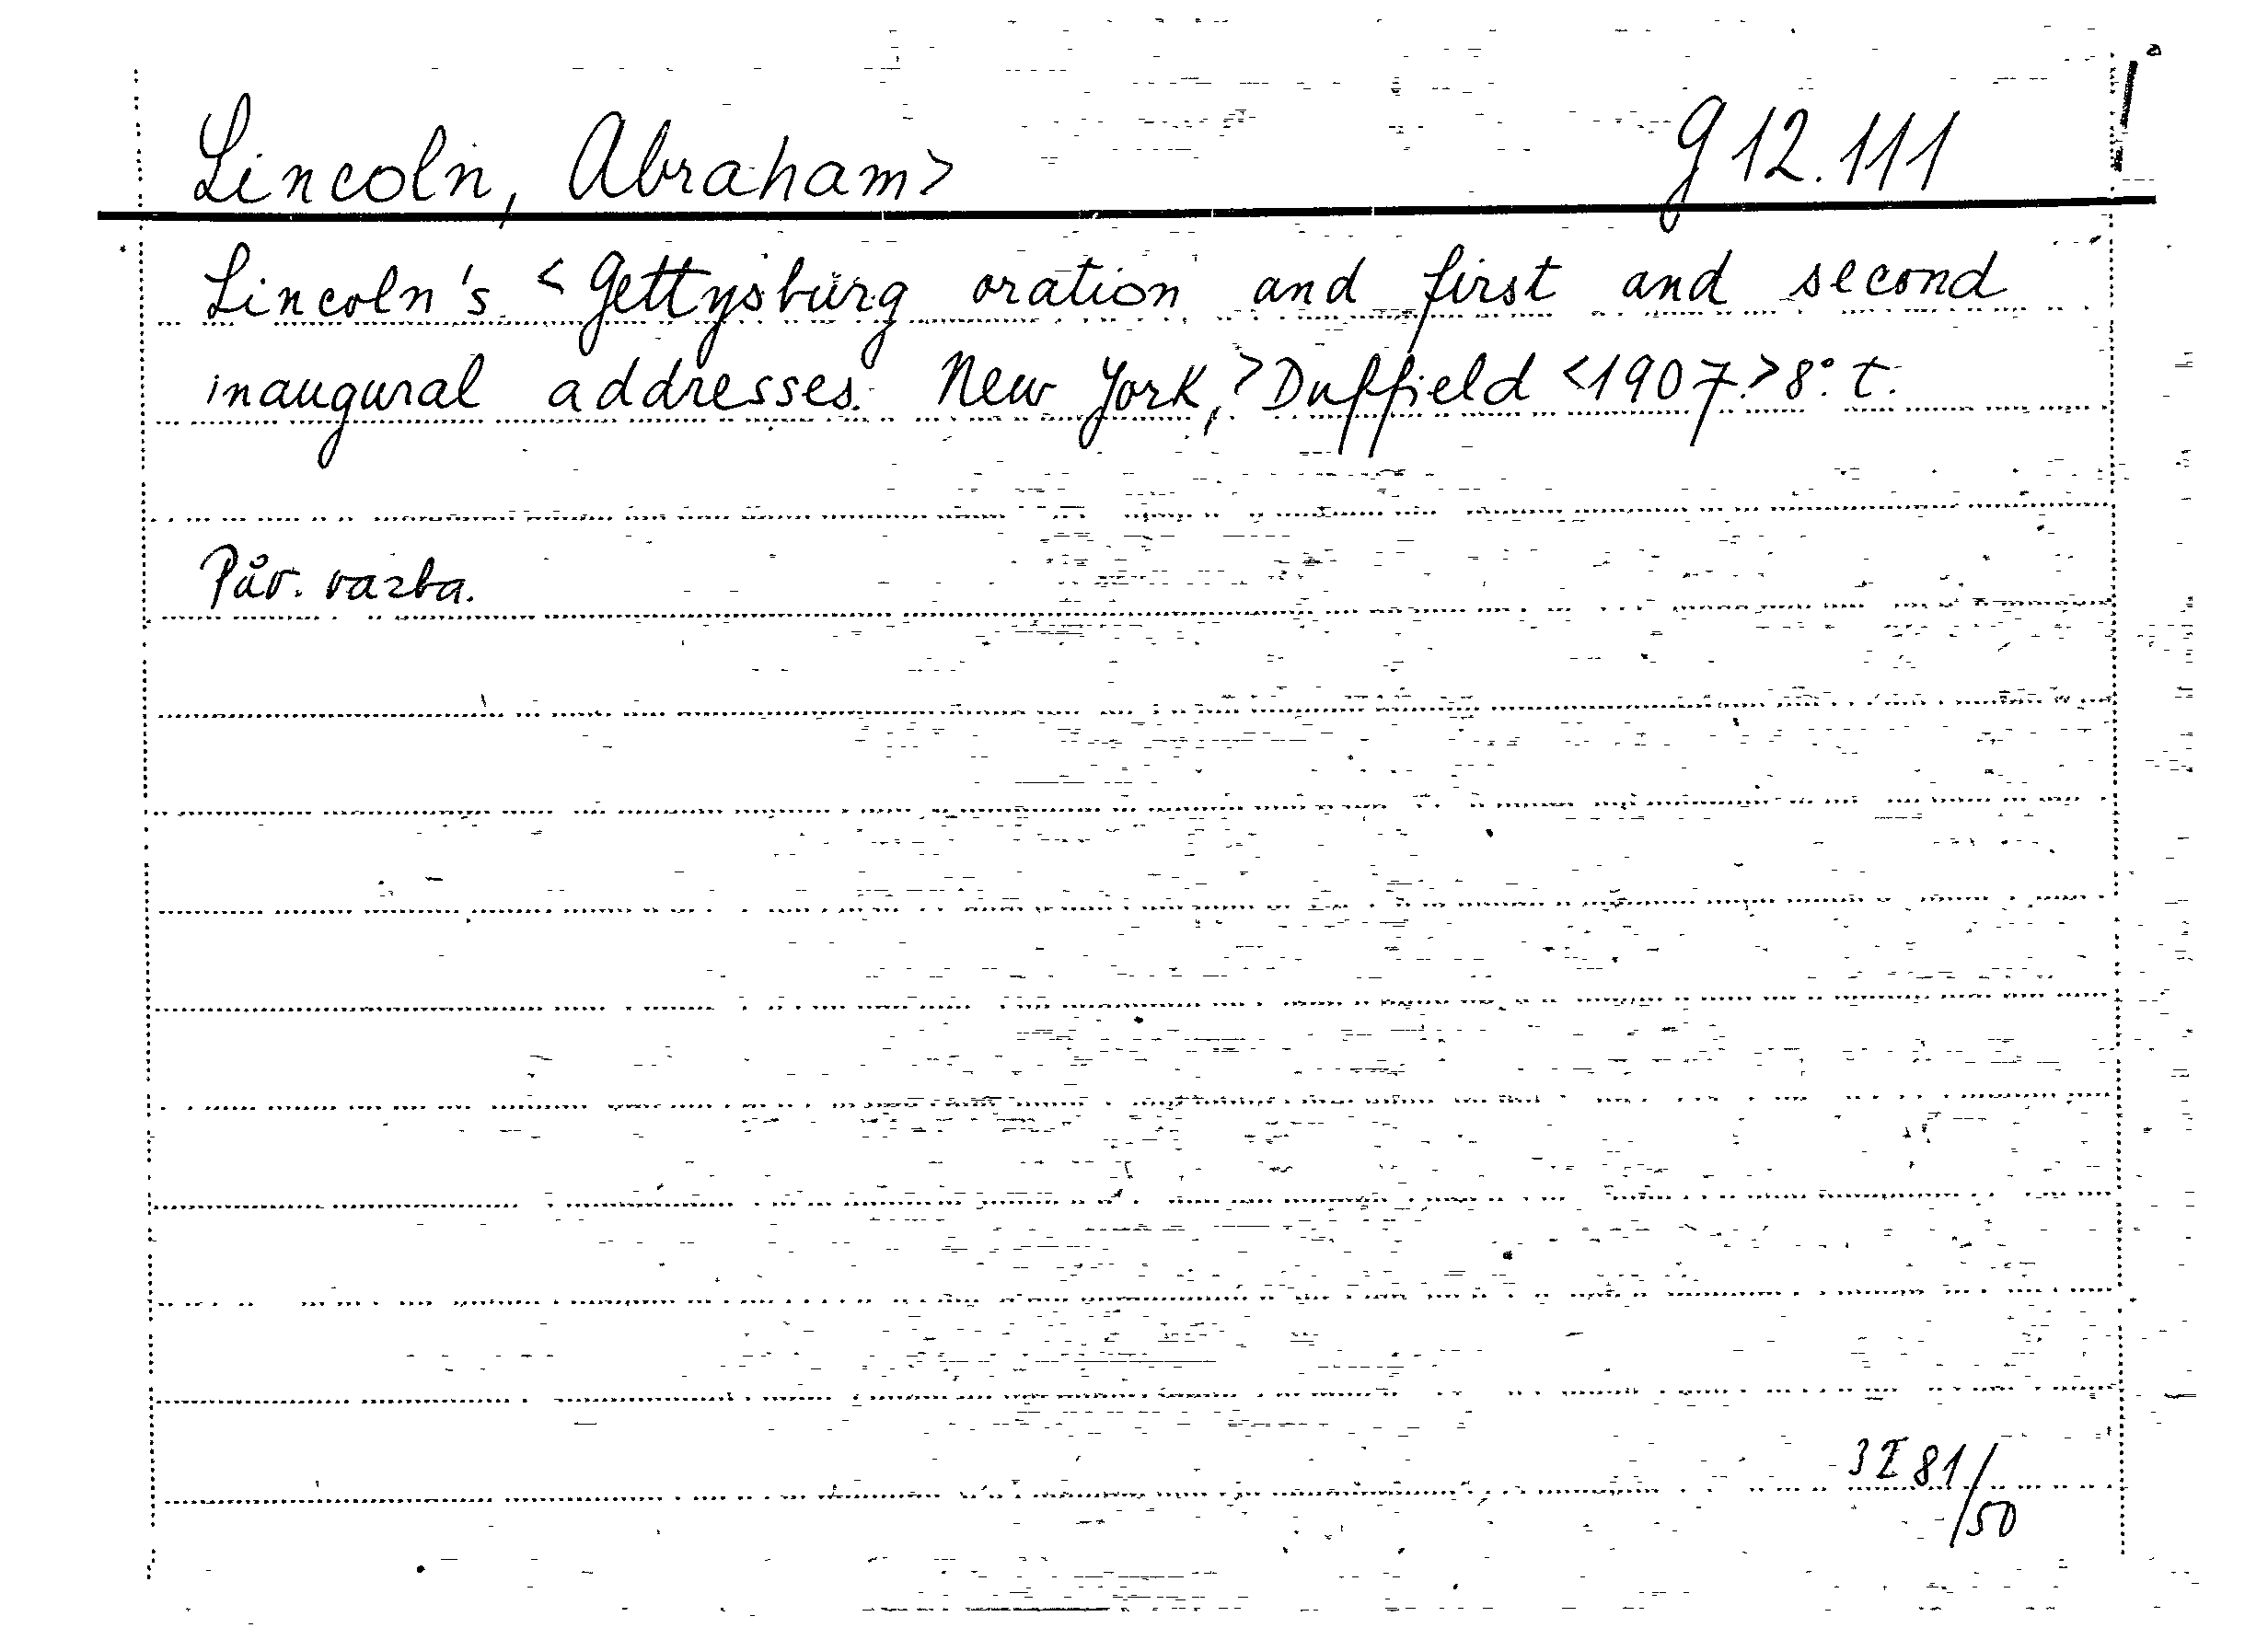 Lincoln, Abraham> g 12.111
Lincoln's < Gettysburg oration and first and second
inaugural addresses. New York,> Duffield <1907.> 8° t.
Pův. vazba.
3 I 81/50